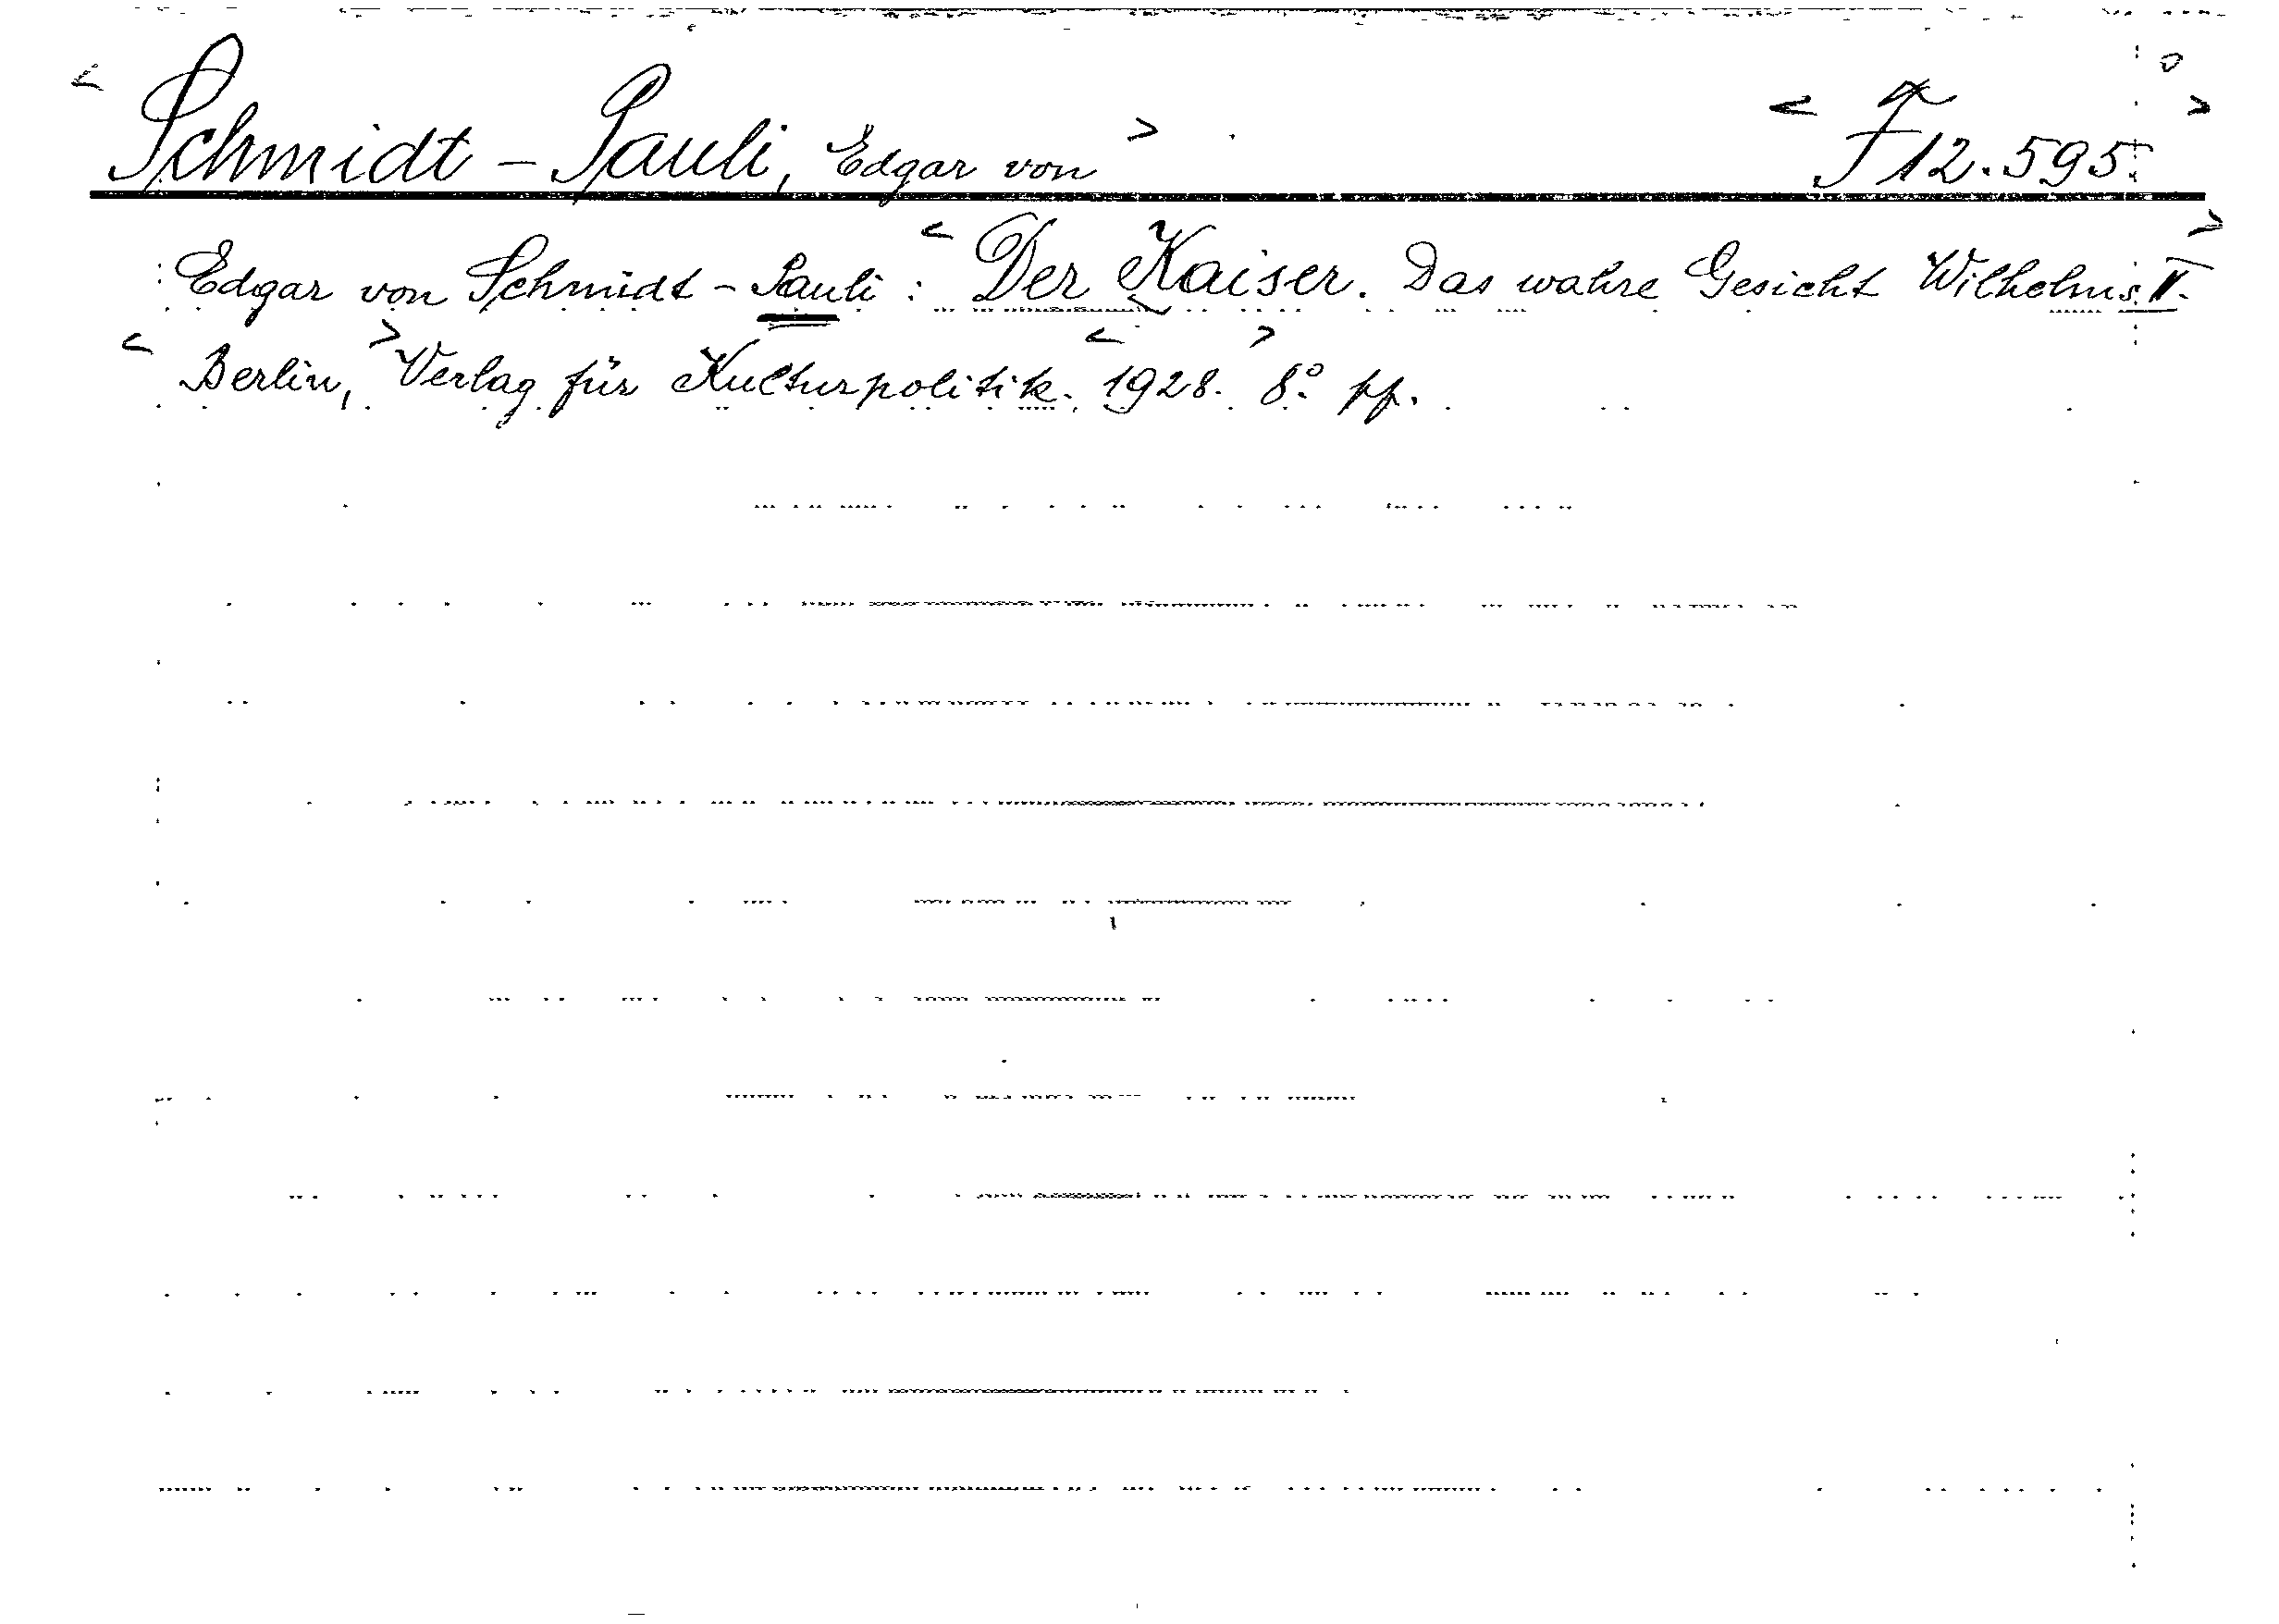 < Schmidt - Pauli, Edgar von > < F 12.595. >
Edgar von Schmidt - Pauli : < Der Kaiser. Das wahre Gesicht Wilhelms II. >
< Berlin, > Verlag für Kulturpolitik. < 1928. > 8° pf.